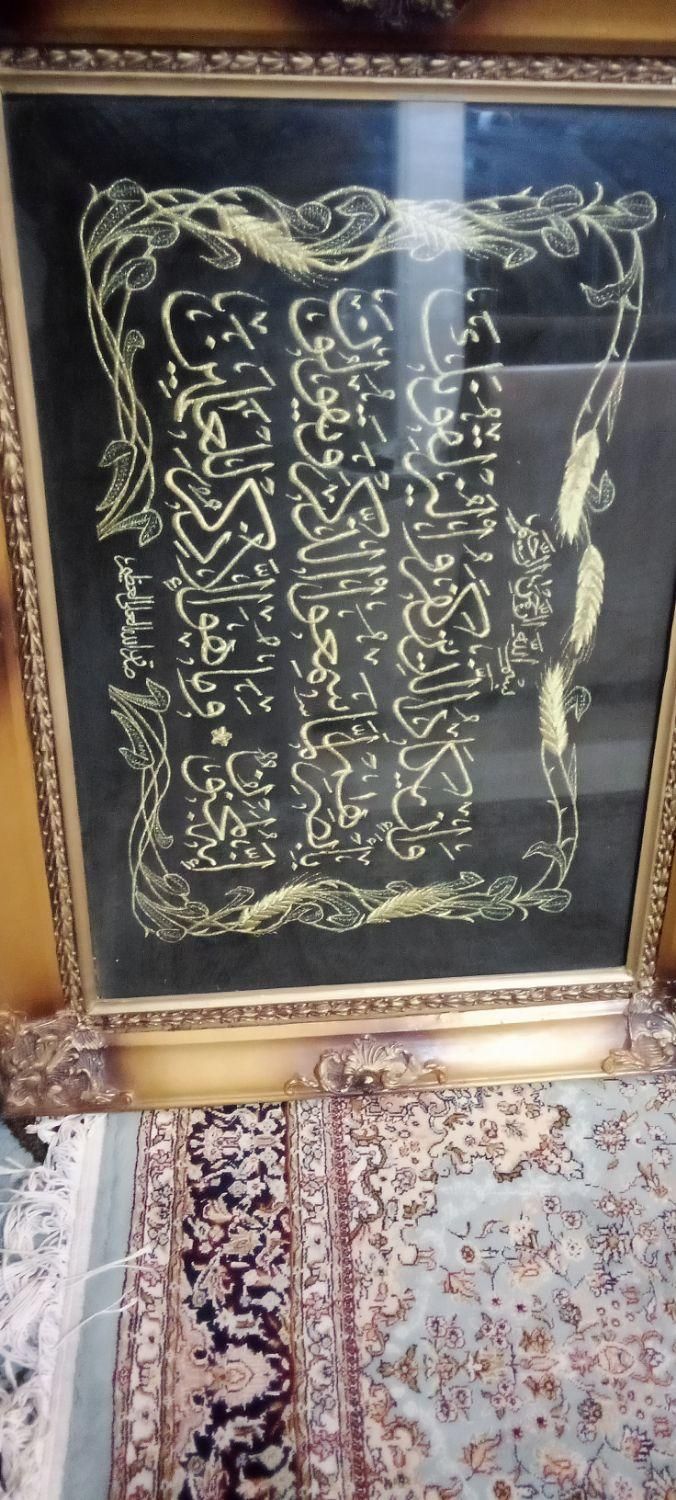 بسم الله الرحمن الرحيم
وَإِن يَكَادُ الَّذِينَ كَفَرُوا لَيُزْلِقُونَكَ
بِأَبْصَارِهِمْ لَمَّا سَمِعُوا الذِّكْرَ وَيَقُولُونَ
إِنَّهُ لَمَجْنُونٌ * وَمَا هُوَ إِلَّا ذِكْرٌ لِّلْعَالَمِينَ
صدق الله العلي العظيم